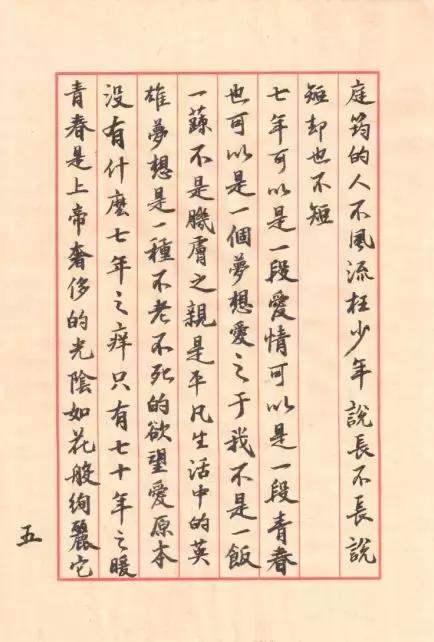 庭筠的人不風流枉少年說長不長說
短却也不短
七年可以是一段愛情可以是一段青春
也可以是一個夢想愛之于我不是一飯
一蔬不是肌膚之親是平凡生活中的英
雄夢想是一種不老不死的欲望愛原本
沒有什麽七年之痒只有七十年之暖
青春是上帝奢侈的光陰如花般絢麗它
五